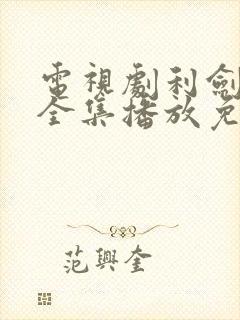 電視劇利劍
全集播放免
范興奎